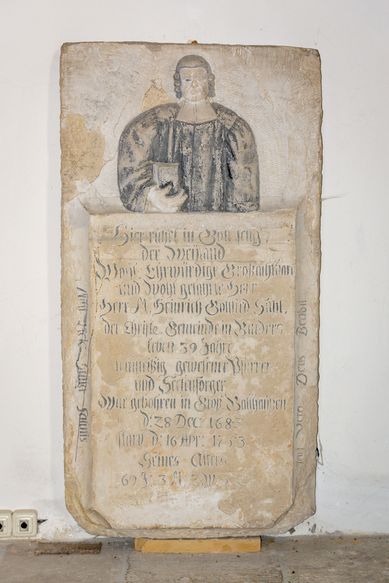 Hier ruhet in Gott selig
der Weyland
Wohl Ehrwürdige Großachtbare
und Wohl gelahrte Herr
Herr M. Heinrich Gottfried
der Christl. Gemeinde in Balders
leben 39 Jahre
gewesener Pfarrer
und Seelensorger
War gebohren in Groß Ballhausen
d: 28 Dec: 1683
starb d: 16 Apr: 1753
Seines Alters
69 J: 3 M: 3 W: